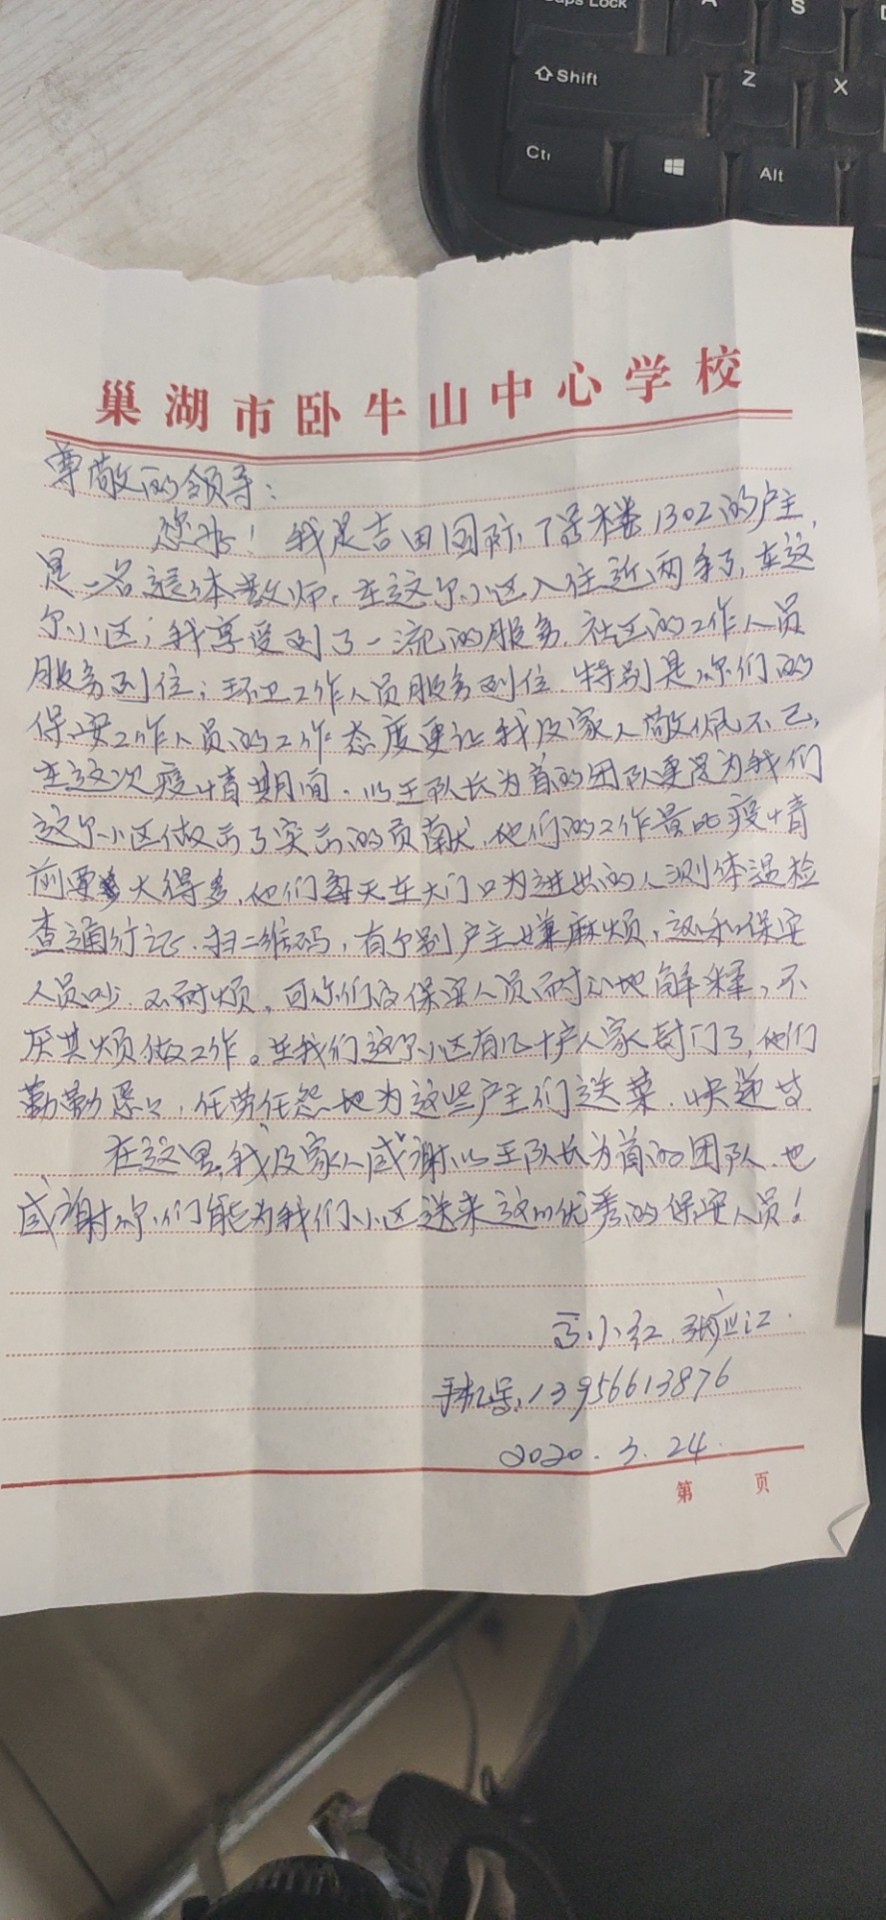 Caps Lock
A
S
Shift
Z
X
Alt
巢湖市卧牛山中心学校
尊敬的领导：
您好！我是吉田国际7号楼1302的户主，
是一名退休教师。在这个小区入住近两年了，在这
个小区，我享受到了一流的服务，社区的工作人员
服务到位；环卫工作人员服务到位，特别是你们的
保安工作人员的工作态度更让我及家人敬佩不已，
在这次疫情期间，以王队长为首的团队更是为我们
这个小区做出了突出的贡献，他们的工作量比疫情
前要大得多，他们每天在大门口为进出的人测体温检
查通行证、扫二维码，有个别户主嫌麻烦，还和保安
人员吵，不耐烦，可你们的保安人员耐心地解释，不
厌其烦做工作。在我们这个小区有几十户人家封门了，他们
勤勤恳恳，任劳任怨地为这些户主们送菜、快递等
在这里，我及家人感谢以王队长为首的团队，也
感谢你们能为我们小区送来这么优秀的保安人员！
小红
手机号：13956613876
2020.3.24
第 页